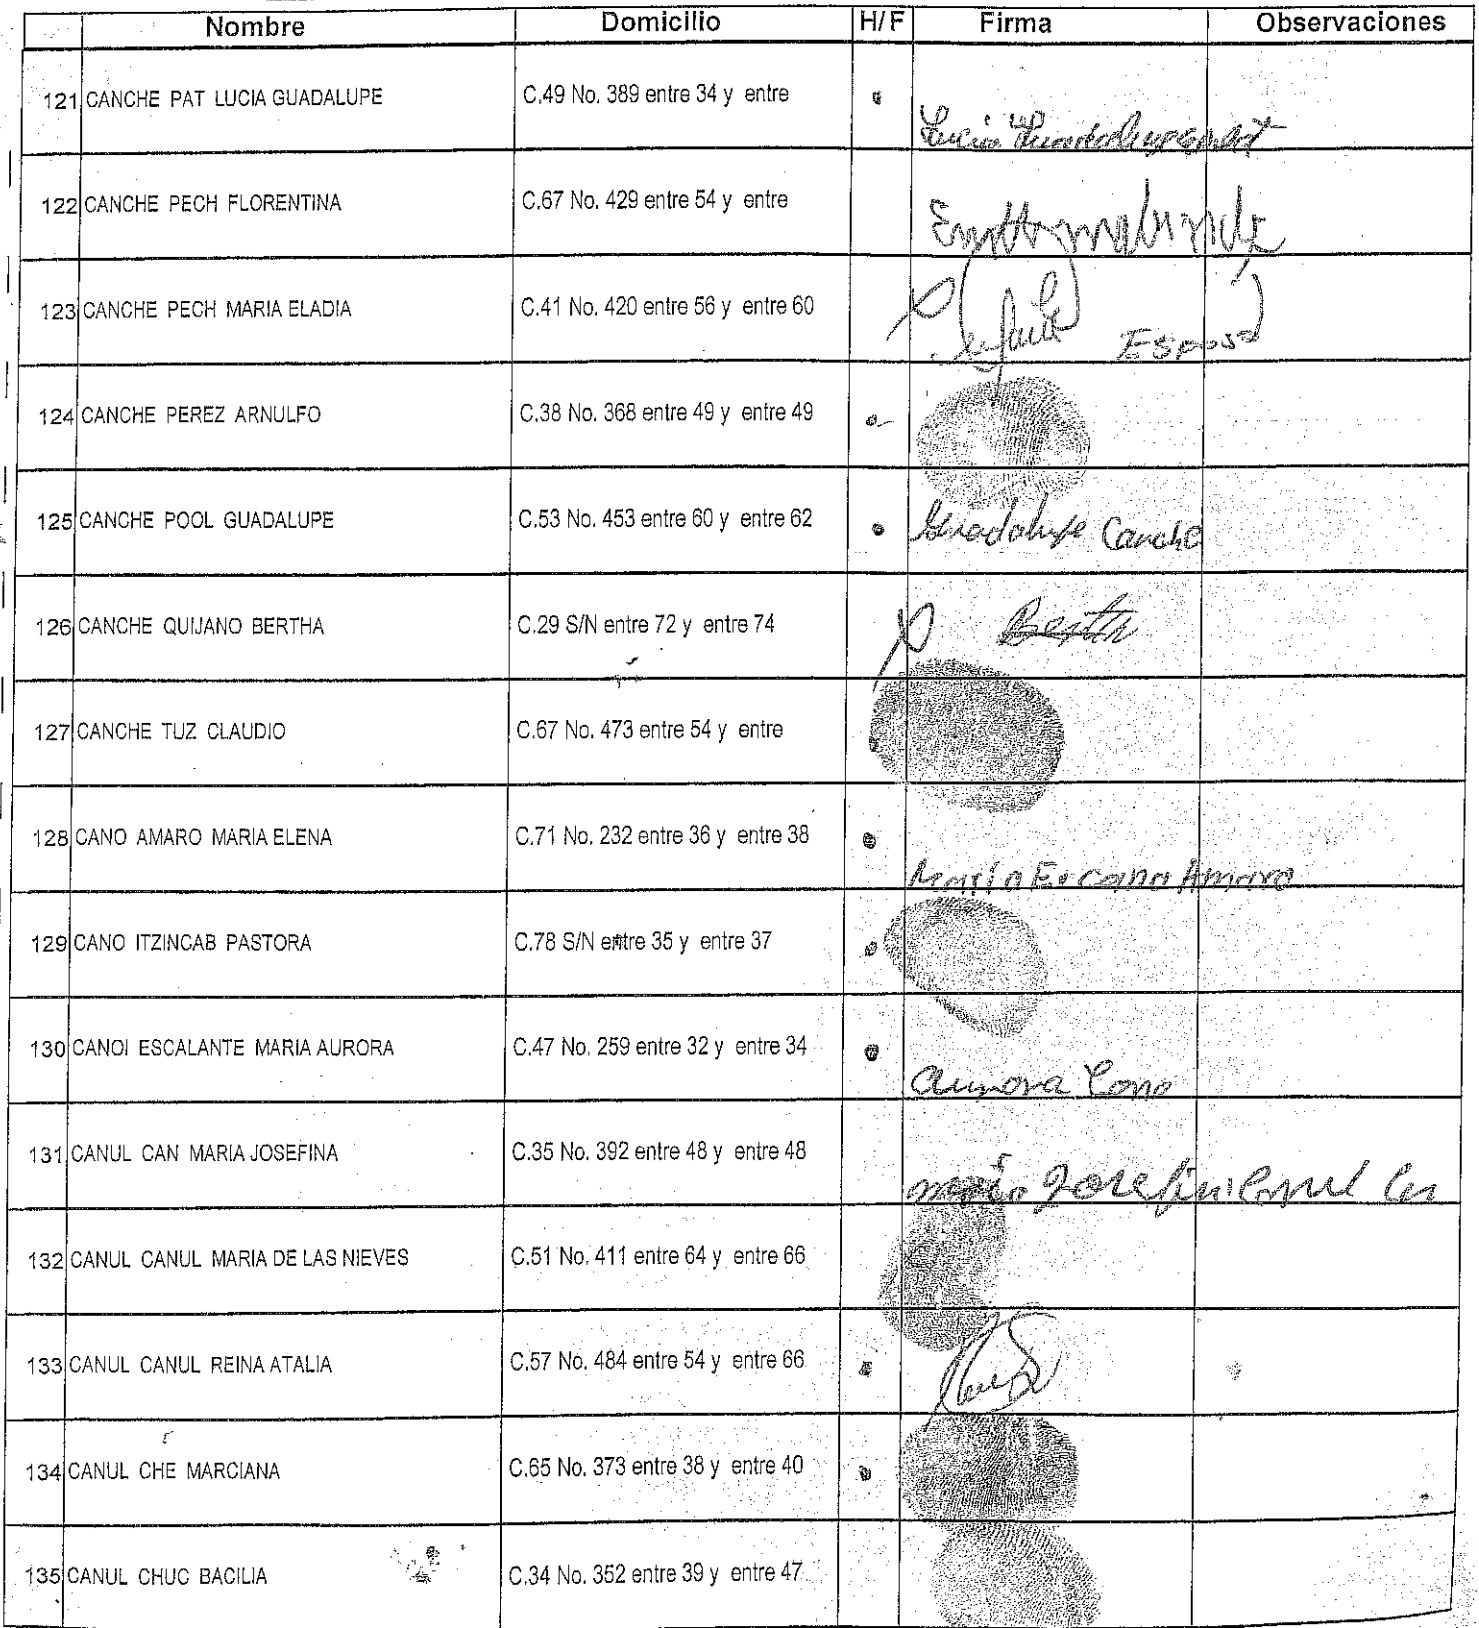 Nombre Domicilio H/F Firma Observaciones
121 CANCHE PAT LUCIA GUADALUPE C.49 No. 389 entre 34 y entre Lucia
122 CANCHE PECH FLORENTINA C.67 No. 429 entre 54 y entre
123 CANCHE PECH MARIA ELADIA C.41 No. 420 entre 56 y entre 60 Esposo
124 CANCHE PEREZ ARNULFO C.38 No. 368 entre 49 y entre 49
125 CANCHE POOL GUADALUPE C.53 No. 453 entre 60 y entre 62 Guadalupe Canche
126 CANCHE QUIJANO BERTHA C.29 S/N entre 72 y entre 74
127 CANCHE TUZ CLAUDIO C.67 No. 473 entre 54 y entre
128 CANO AMARO MARIA ELENA C.71 No. 232 entre 36 y entre 38 Maria E. cano Amaro
129 CANO ITZINCAB PASTORA C.78 S/N entre 35 y entre 37
130 CANOI ESCALANTE MARIA AURORA C.47 No. 259 entre 32 y entre 34 Aurora Cano
131 CANUL CAN MARIA JOSEFINA C.35 No. 392 entre 48 y entre 48
132 CANUL CANUL MARIA DE LAS NIEVES C.51 No. 411 entre 64 y entre 66
133 CANUL CANUL REINA ATALIA C.57 No. 484 entre 54 y entre 66
134 CANUL CHE MARCIANA C.65 No. 373 entre 38 y entre 40
135 CANUL CHUC BACILIA C.34 No. 352 entre 39 y entre 47